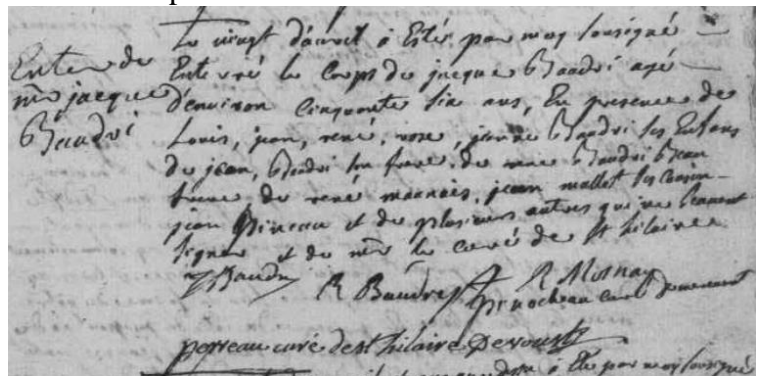 Enter. de
mre jacque
Baudri
Le vingt d'avril à Esté par moy sousigné
Enterré le Corps de jacque Baudri agé
d'environ Cinquante six ans, En presence de
Louis, jean, rené, rose, jeanne Baudri ses Enfans
de jean, Baudri son frere, de rene Baudri Beau
frere, de rené marnais, jean mallet ses Cousin
jean Pineau et de plusieurs autres qui ne scavent
signer et de mre le curé de St hilaire
Baudri
R Baudry
R Mosnay
curé
curé de st hilaire de voust
à Esté par moy sousigné